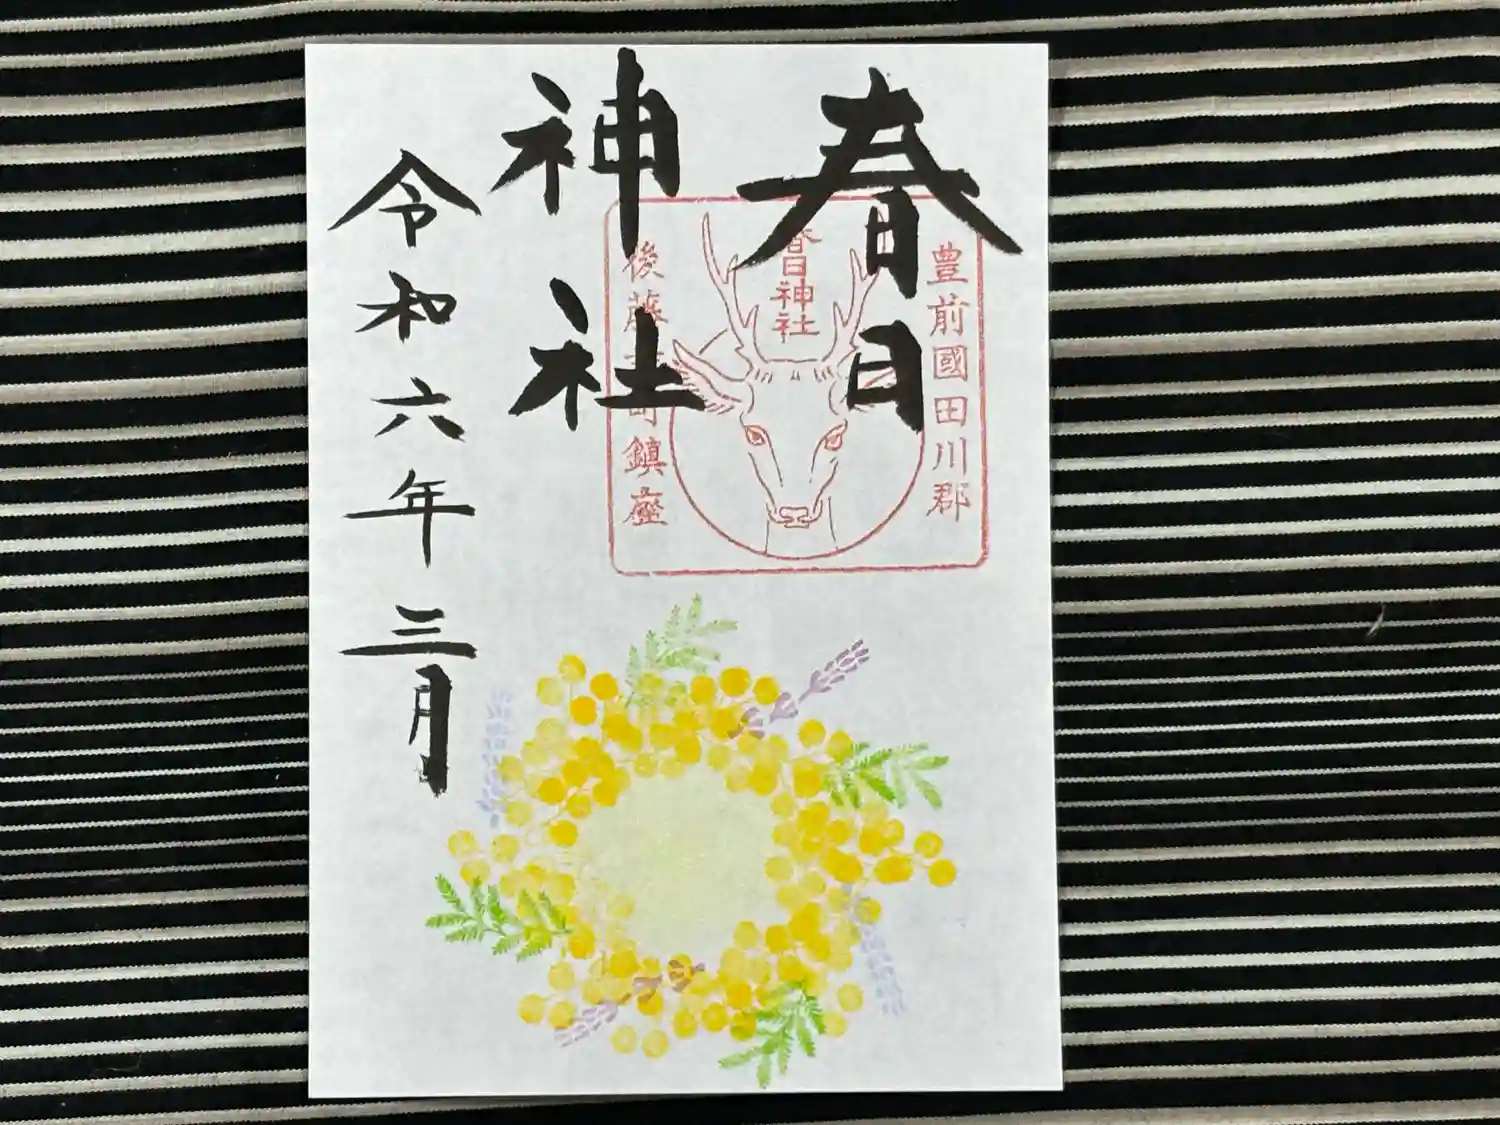 春日
神社
令和六年三月
豊前國田川郡
春日神社
後藤寺町鎮座